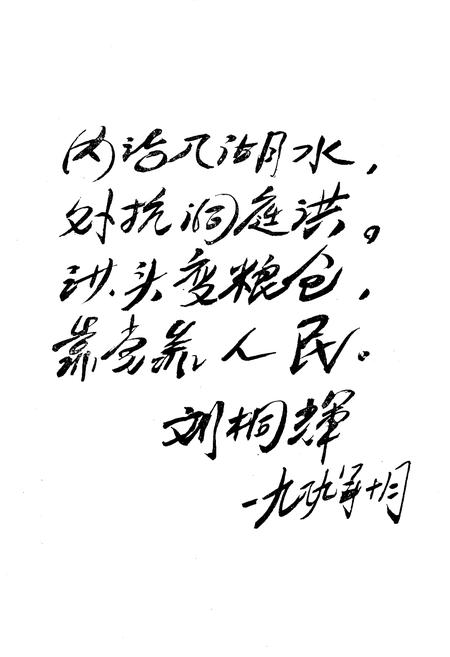 内治湖水，
外抗洞庭洪。
头变粮仓，
靠党靠人民。
刘桐輝
一九八九年十月